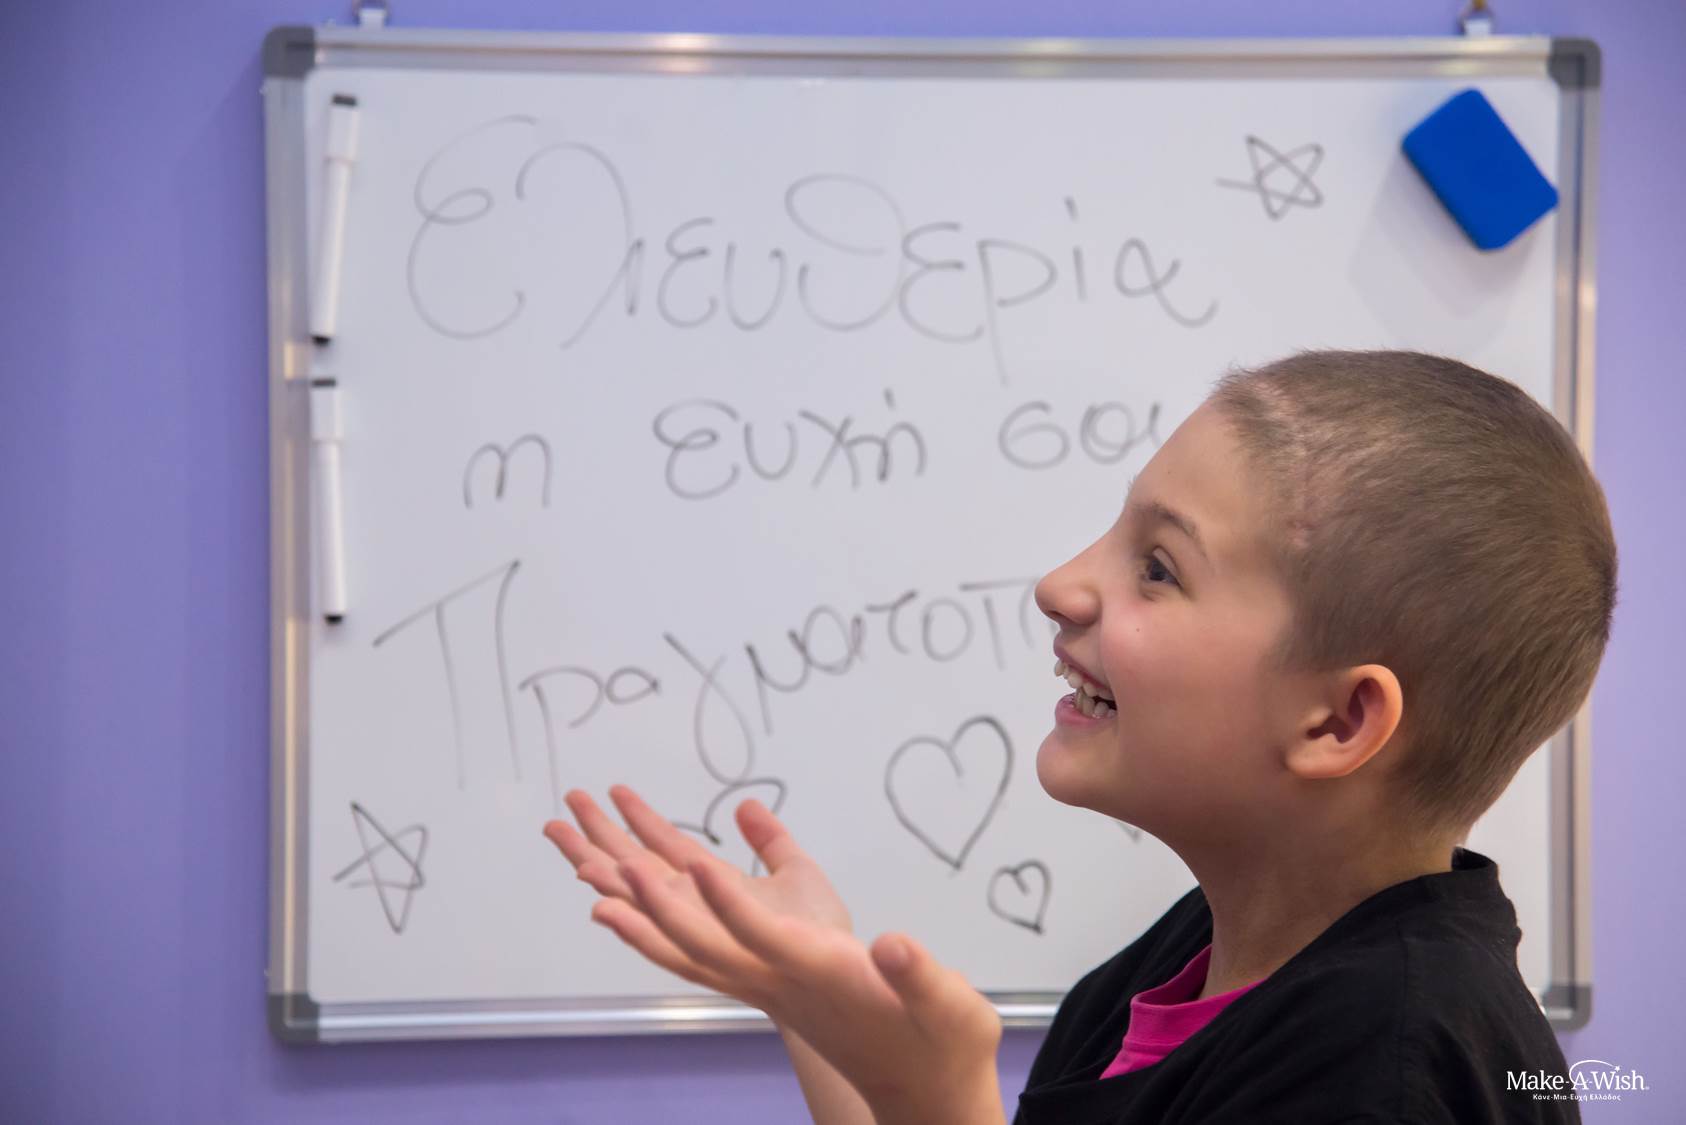 Ελευθερία
η ευχή σου
Πραγματοπ
Make-A-Wish®
Κάνε-Μια-Ευχή Ελλάδος